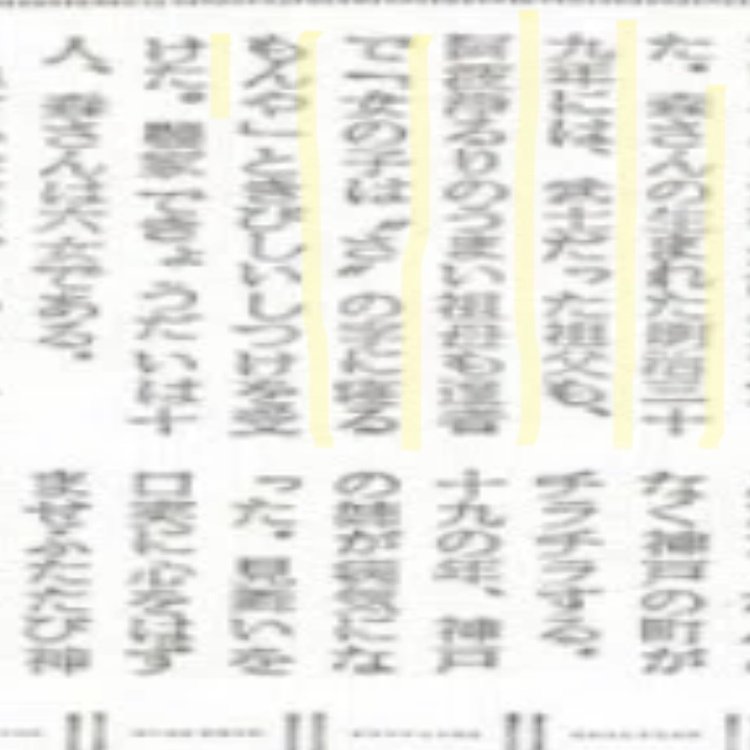 た。森さんの生まれた明治三十
九年には、武士だった祖父も、
阿波浄るりのうまい祖母も達者
で「女の子は〝さ〟の字に寝る
もんや」ときびしいしつけを受
けた。鶴家できょうだいは十
人、森さんは六女である。
なく神戸の町が
チラチラする。
十九の年、神戸
の姉が病気にな
った。見舞いを
口実に心をはず
ませふたたび神